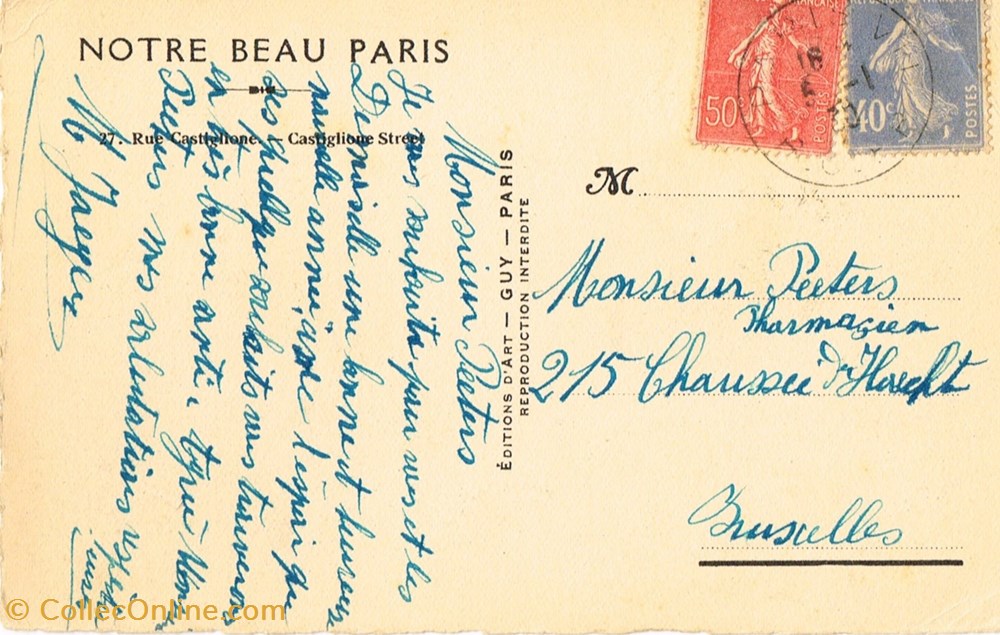 NOTRE BEAU PARIS
27. Rue Castiglione. — Castiglione Street
Monsieur Peeters
Je vous souhaite pour vous et les
Demoiselle une bonne et heureuse
nouvelle année, avec l'espoir que
ces quelques souhaits vous trouverons
en très bonne santé. Agréé Monsieur
Peeters mes salutations respectueuses
M Jaegers
ÉDITIONS D'ART — GUY — PARIS
REPRODUCTION INTERDITE
50c
POSTES
40c
POSTES
M
Monsieur Peeters
Pharmacien
215 Chaussée d'Haecht
Bruxelles
© CollecOnline.com